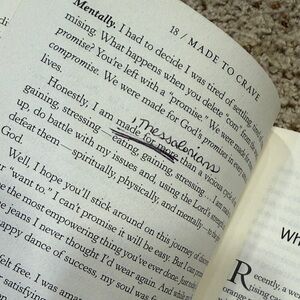 18 / MADE TO CRAVE
Mentally. I had to decide I was tired of settling
mising. What happens when you delete "com" from
promise? You're left with a "promise." We were made
compromise. We were made for God's promise in every
lives.
1 Thessalonians
Honestly, I am made for more than a vicious cycle of
gaining, stressing — eating, gaining, stressing
up, do battle with my issues and, using the Lord's
defeat them — spiritually, physically, and mentally — to the
God.
Well, I hope you'll stick around on this journey of
"want to." I can't promise it will be easy. But I can
the most empowering thing you've ever done. Just
jeans I never thought I'd wear again. And while
happy dance of success, my soul was
felt free. I was amazed
Wh
Recently, a w
rising ca
orange